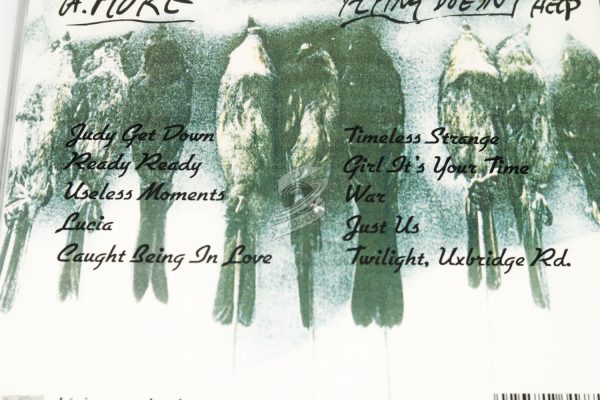 A. MORE
FLYING DOESN'T HELP
Judy Get Down
Ready Ready
Useless Moments
Lucia
Caught Being In Love
Timeless Strange
Girl It's Your Time
War
Just Us
Twilight, Uxbridge Rd.